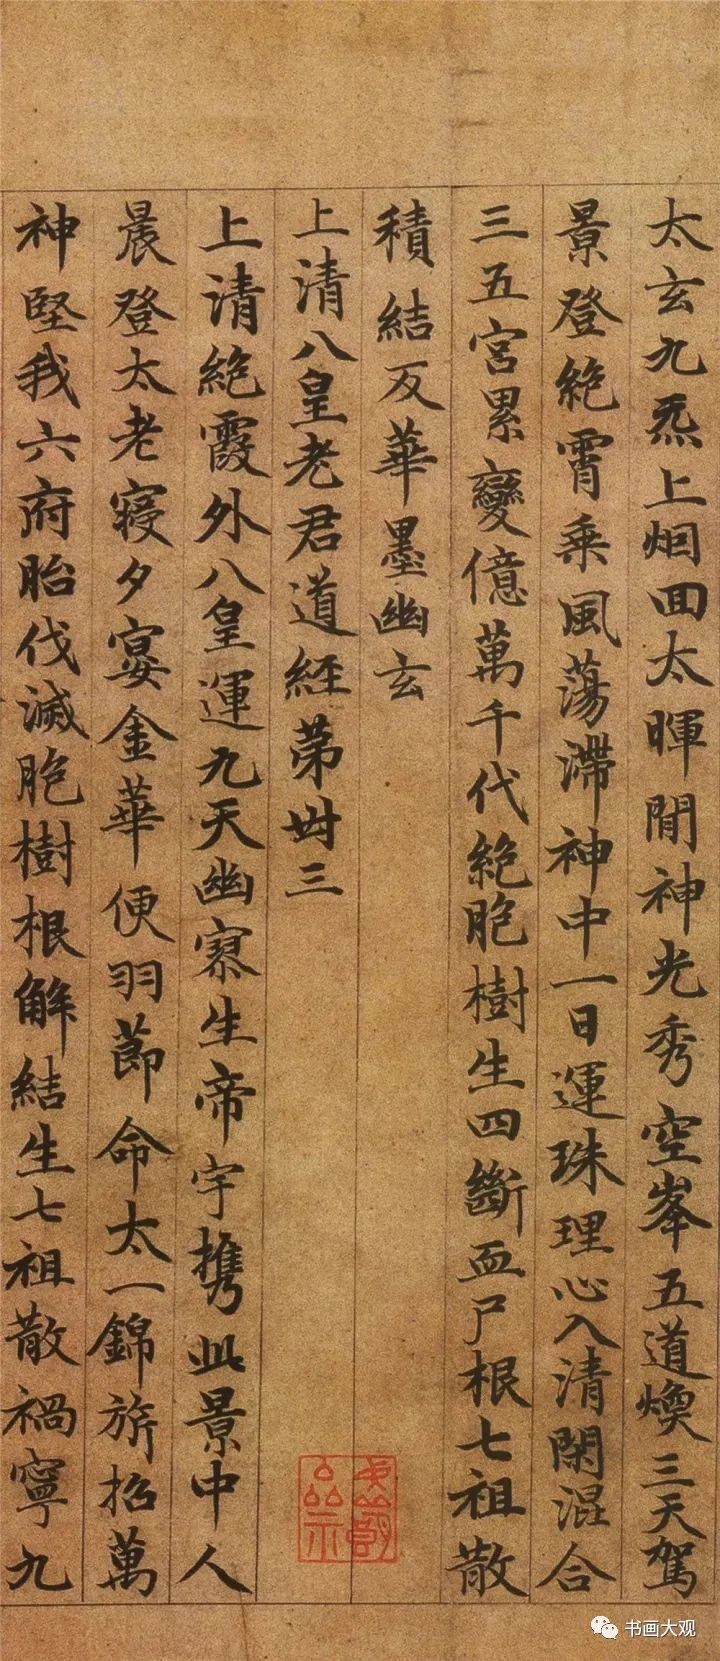 太玄九炁上烟回太暉閒神光秀空峯五道煥三天駕
景登絶霄乘風蕩滯神中一日運珠理心入清閑混合
三五宮累變億萬千代絶胞樹生四斷血尸根七祖散
積結反華墨幽玄
上清八皇老君道經苐卅三
上清絶霞外八皇運九天幽寥生帝宇攜此景中人
晨登太老寢夕宴金華便羽莭命太一錦旂招萬
神堅我六府胎伐滅胞樹根解結生七祖散禍寧九
书画大观